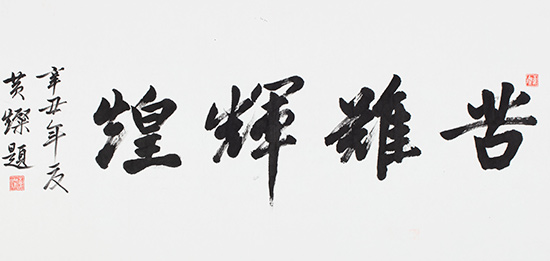 苦難輝煌
辛丑年夏
黄燦題